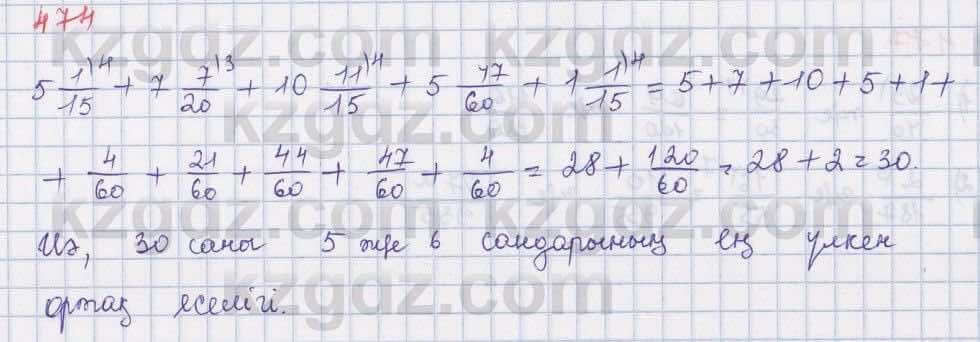 474
5 1/15 ⁾⁴ + 7 7/20 ⁾³ + 10 11/15 ⁾⁴ + 5 47/60 + 1 1/15 ⁾⁴ = 5+7+10+5+1+
+ 4/60 + 21/60 + 44/60 + 47/60 + 4/60 = 28 + 120/60 = 28+2=30.
Иә, 30 саны 5 және 6 сандарының ең үлкен
ортақ еселігі.
kzgdz.com
kzgdz.com
kzgdz.com
kzgdz.com
kzgdz.com
kzgdz.com